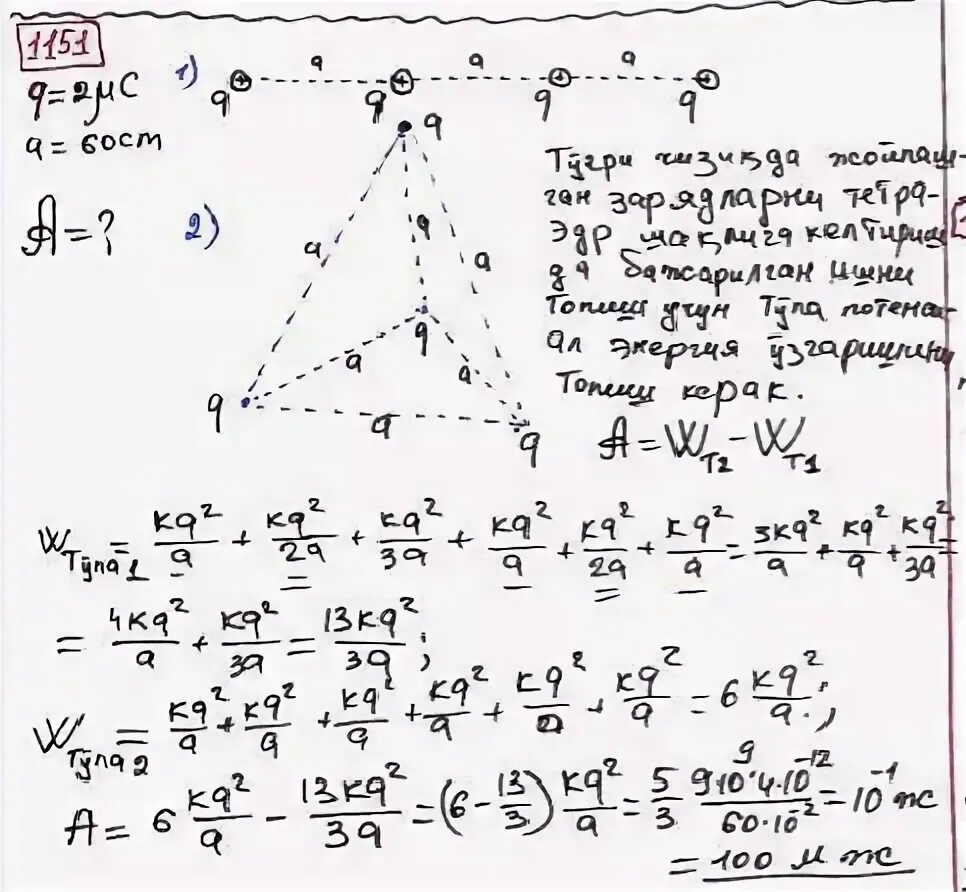 1151
q=2μC
a=60см
A=?
1)
a a a
q q q q
2)
q
a a a
q
a a
q a q
Тўғри чизиқда жойлаш-
ган зарядларни тетра-
эдр шаклига келтириш
да бажарилган ишни
Топиш учун Тўла потенси-
ал энергия ўзгаришини
Топиш керак.
A = W_T2 - W_T1
W_Тўла1 = kq²/a + kq²/2a + kq²/3a + kq²/a + kq²/2a + kq²/a = 3kq²/a + kq²/a + kq²/3a =
= 4kq²/a + kq²/3a = 13kq²/3a ;
W_Тўла2 = kq²/a + kq²/a + kq²/a + kq²/a + kq²/a + kq²/a = 6 kq²/a ;
A = 6 kq²/a - 13kq²/3a = (6 - 13/3) kq²/a = 5/3 9·10⁹·4·10⁻¹²/60·10⁻² = 10⁻¹ ж
= 100 м ж